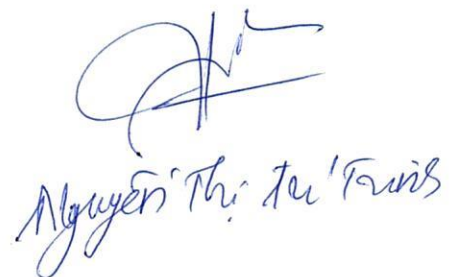 Nguyễn Thị Tú Trinh